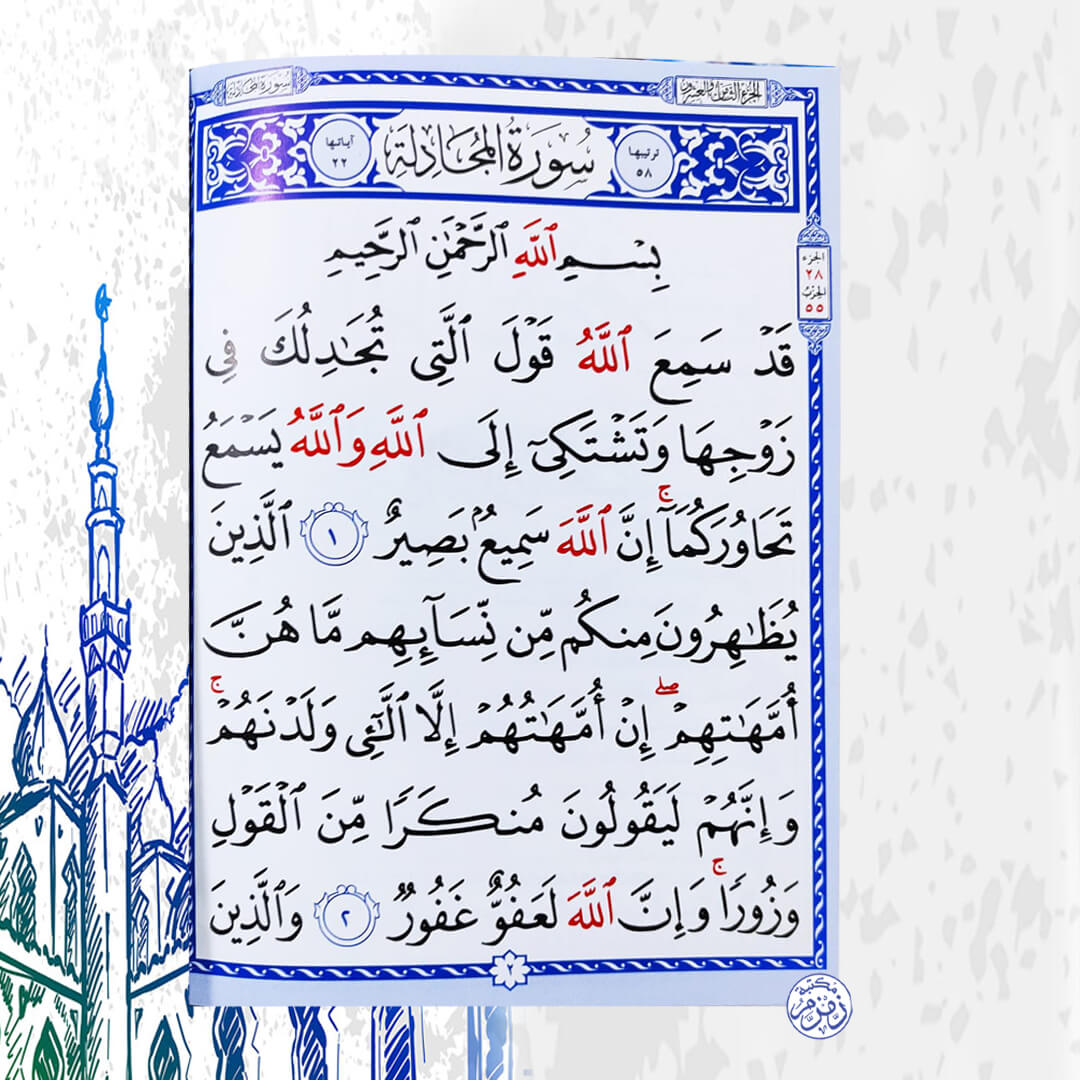 الجزء الثامن والعشرون
سورة المجادلة
ترتيبها
٥٨
سُورَةُ المُجَادِلَةِ
آياتها
٢٢
بِسْمِ ٱللَّهِ ٱلرَّحْمَٰنِ ٱلرَّحِيمِ
الجزء
٢٨
الحزب
٥٥
قَدْ سَمِعَ ٱللَّهُ قَوْلَ ٱلَّتِى تُجَٰدِلُكَ فِى
زَوْجِهَا وَتَشْتَكِىٓ إِلَى ٱللَّهِ وَٱللَّهُ يَسْمَعُ
تَحَاوُرَكُمَآ ۚ إِنَّ ٱللَّهَ سَمِيعٌۢ بَصِيرٌ ١ ٱلَّذِينَ
يُظَٰهِرُونَ مِنكُم مِّن نِّسَآئِهِم مَّا هُنَّ
أُمَّهَٰتِهِمْ ۖ إِنْ أُمَّهَٰتُهُمْ إِلَّا ٱلَّٰٓـِٔى وَلَدْنَهُمْ ۚ
وَإِنَّهُمْ لَيَقُولُونَ مُنكَرًا مِّنَ ٱلْقَوْلِ
وَزُورًا ۚ وَإِنَّ ٱللَّهَ لَعَفُوٌّ غَفُورٌ ٢ وَٱلَّذِينَ
٢
مكتبة
زمزم